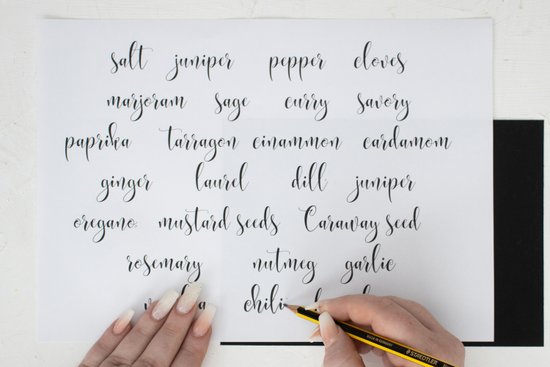 salt juniper pepper cloves
marjoram sage curry savory
paprika tarragon cinammon cardamom
ginger laurel dill juniper
oregano mustard seeds Caraway seed
rosemary nutmeg garlic
chili
STAEDTLER